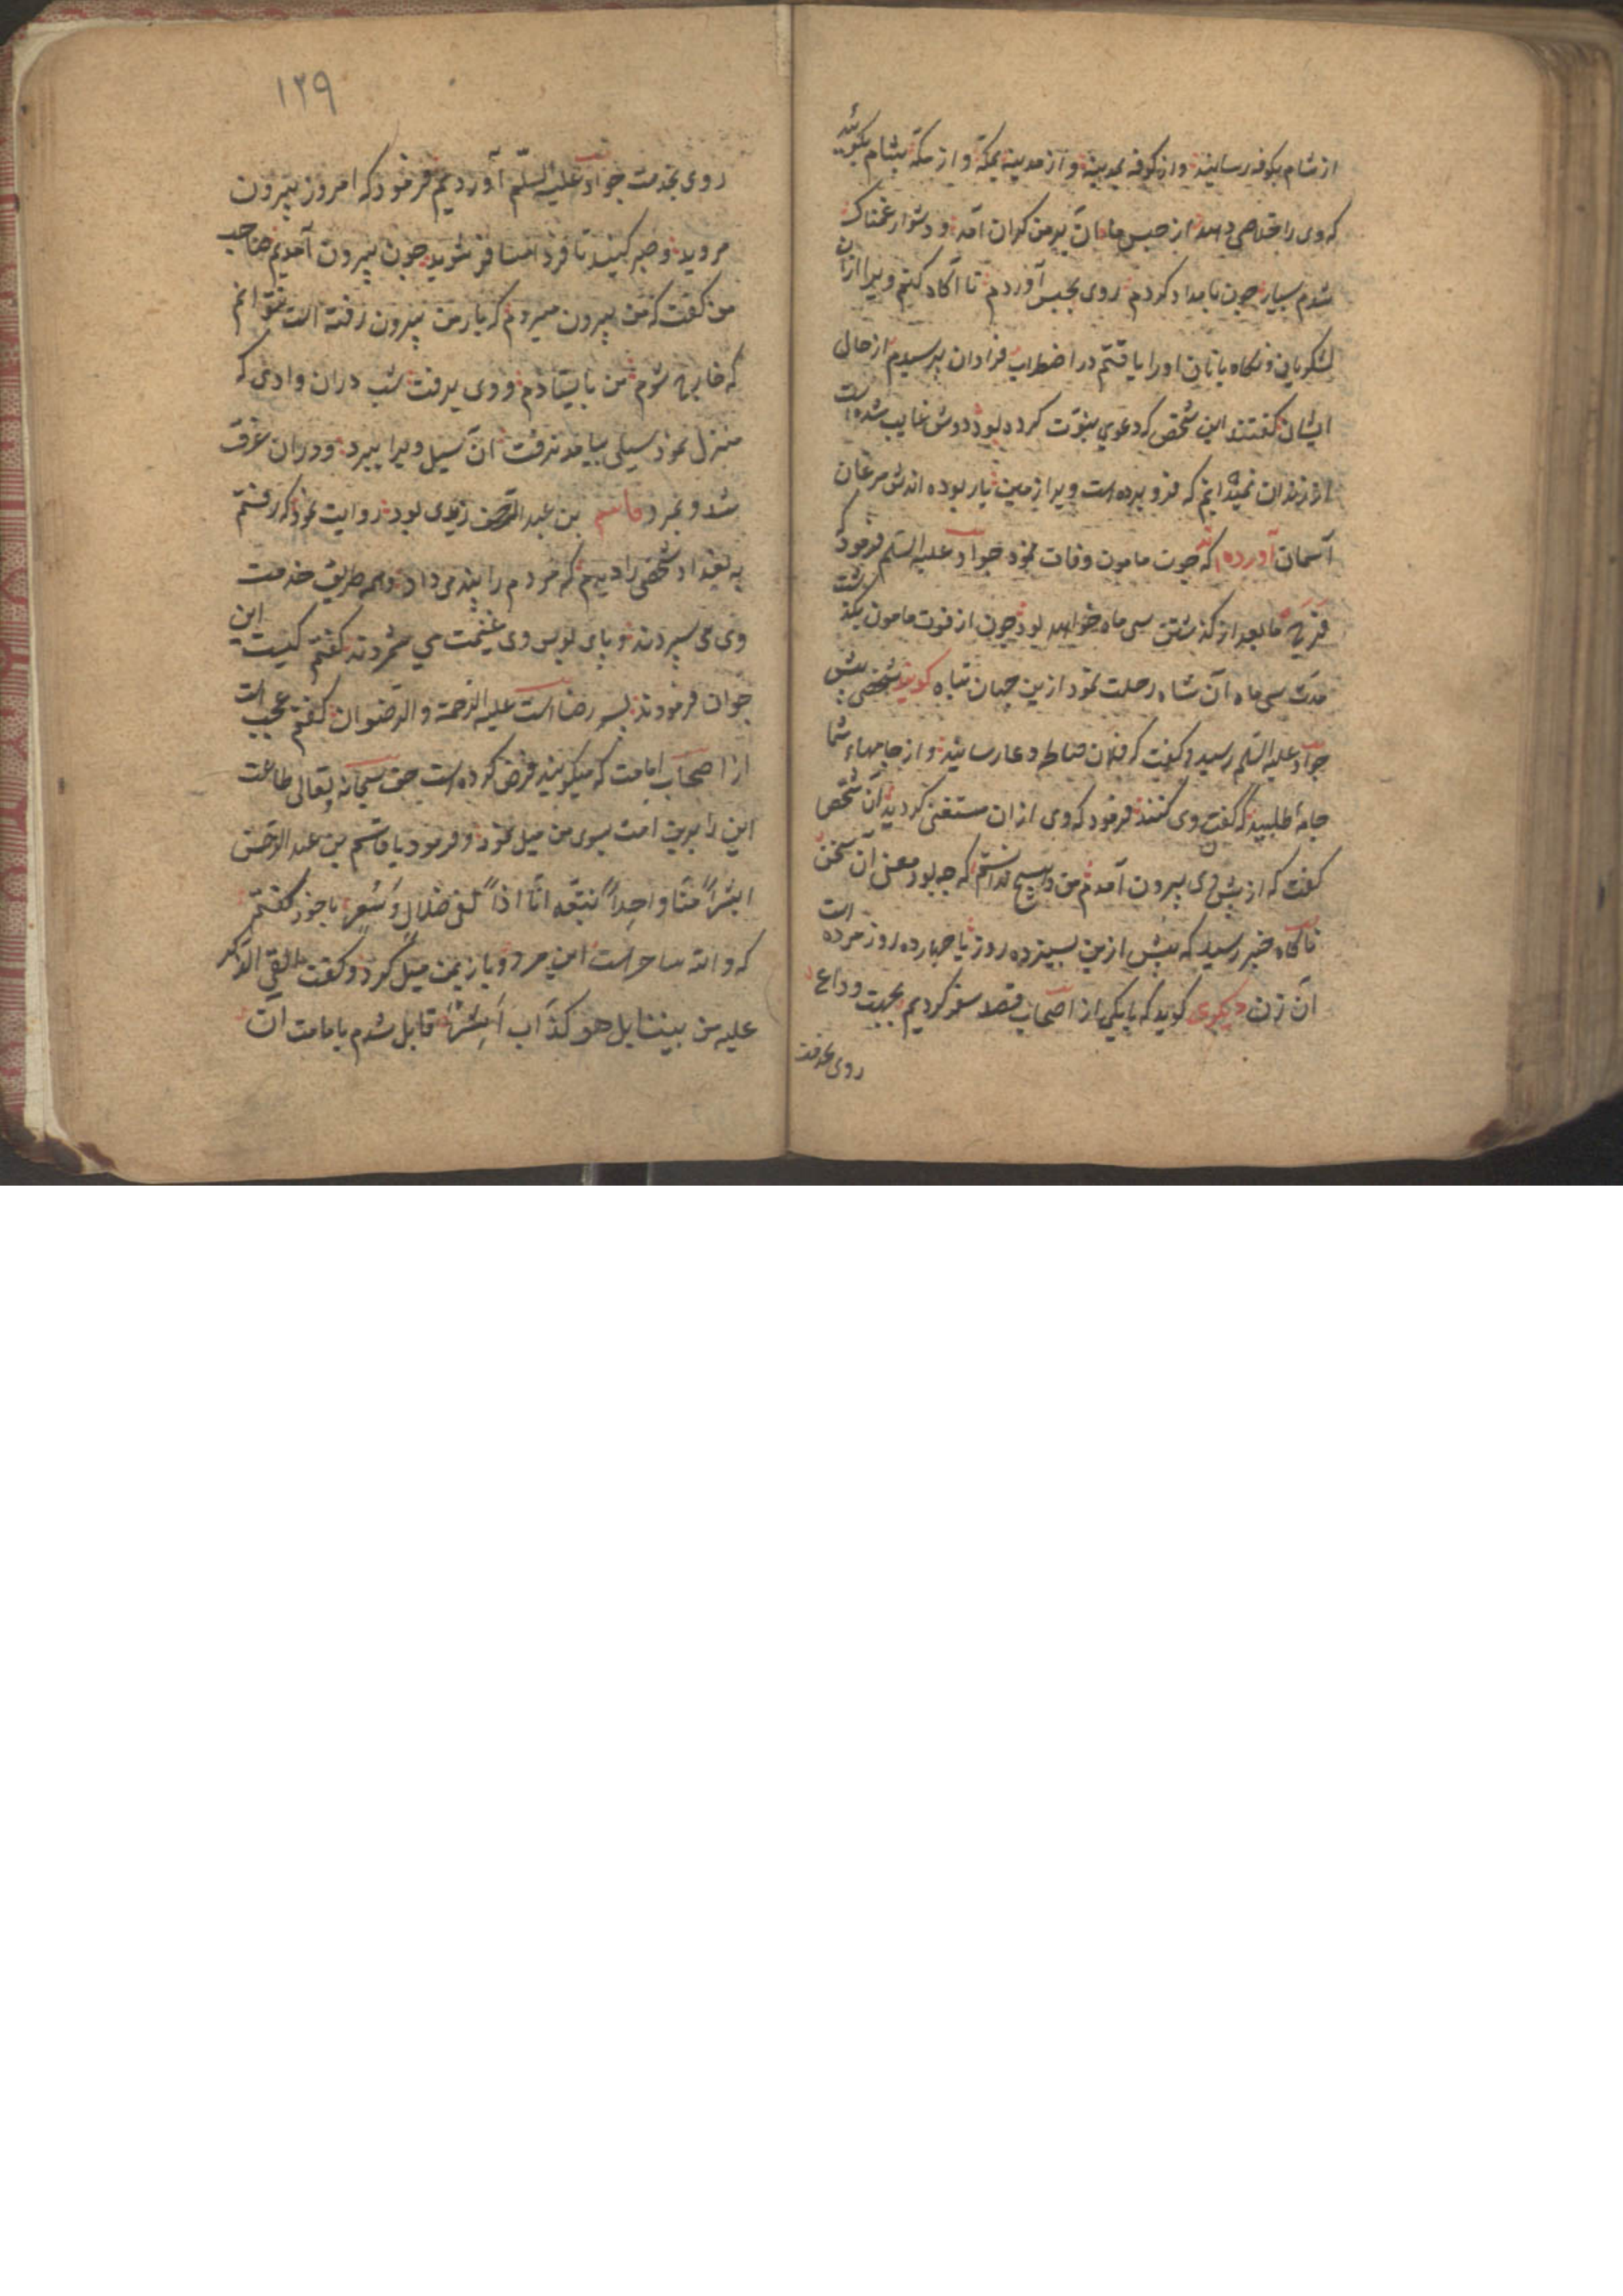 از شام بکوفه رسانید و از کوفه بمدینه و از مدینه بمکه و از مکه بشام بکوئید
که وی را خلاصی دهد از حبس ما آن بر من کران آمد و دشوار غمناک
شدم بسیار چون بامداد کردم روی بحبس آوردم تا آکاه کنم ویرا از آن
لشکریان و نکاه بانان او را یافتم در اضطراب فراوان پرسیدم از حال
ایشان کفتند این شخص که دعوی نبوت کرده بود دوش غایب شده است
از زندان نمیدانیم که فرو برده است ویرا زمین یا ربوده اندش مرغان
آسمان آورده اند که چون مامون وفات نمود جواد علیه السلم فرمود که
فرج ما بعد از کذشتن سی ماه خواهد بود چون از فوت مامون بکذشت
مدت سی ماه آن شاه رحلت نمود ازین جهان تباه کویند شخصی پیش
جواد علیه السلم رسید و کفت که فلان دعا رسانید و از جامهاء شما
جامه طلبید که کفن وی کنند فرمود که وی از ان مستغنی کردید آن شخص
کفت که از پیش وی بیرون آمدم من و هیچ ندانستم که چه بود معنی آن سخن
ناکاه خبر رسید که پیش ازین بسیزده روز یا چهارده روز مرده است
آن زن دیکری کوید که با یکی از اصحاب قصد سفر کردیم بجهت وداع
روی بخدمت
۱۲۹
روی بخدمت جواد علیه السلم آوردیم فرمود که امروز بیرون
مروید و صبر کنید تا فردا مسافر شوید چون بیرون آمدیم صاحب
من کفت که من بیرون میروم که بار من بیرون رفته است نتوانم
که شوم من بایستادم و وی برفت شب در ان وادی که
منزل نمود سیلی بیامد آن سیل ویرا ببرد و در ان غرق
شد و بمرد قاسم بن عبد الرحمن زیدی بود روایت نمود که رفتم
به بغداد شخصی را دیدم که مردم را پند می داد و همه طریق خدمت
وی می سپردند و پای بوس وی غنیمت می شمردند کفتم کیست این
جوان فرمودند پسر رضا است علیه الرحمة و الرضوان کفتم عجب است
از اصحاب امامت که میکویند فرض کرده است حق سبحانه و تعالی طاعت
این را برین امت بسوی من میل نمود و فرمود یا قاسم بن عبد الرحمن
ابشراً منّا واحداً نتبعه انّا اذاً لفی ضلال و سعر با خود کفتم
که والله ساحر است این مرد و باز بمن میل کرد و کفت ءالقی الذکر
علیه من بیننا بل هو کذاب اشر قایل شدم بامامت آن